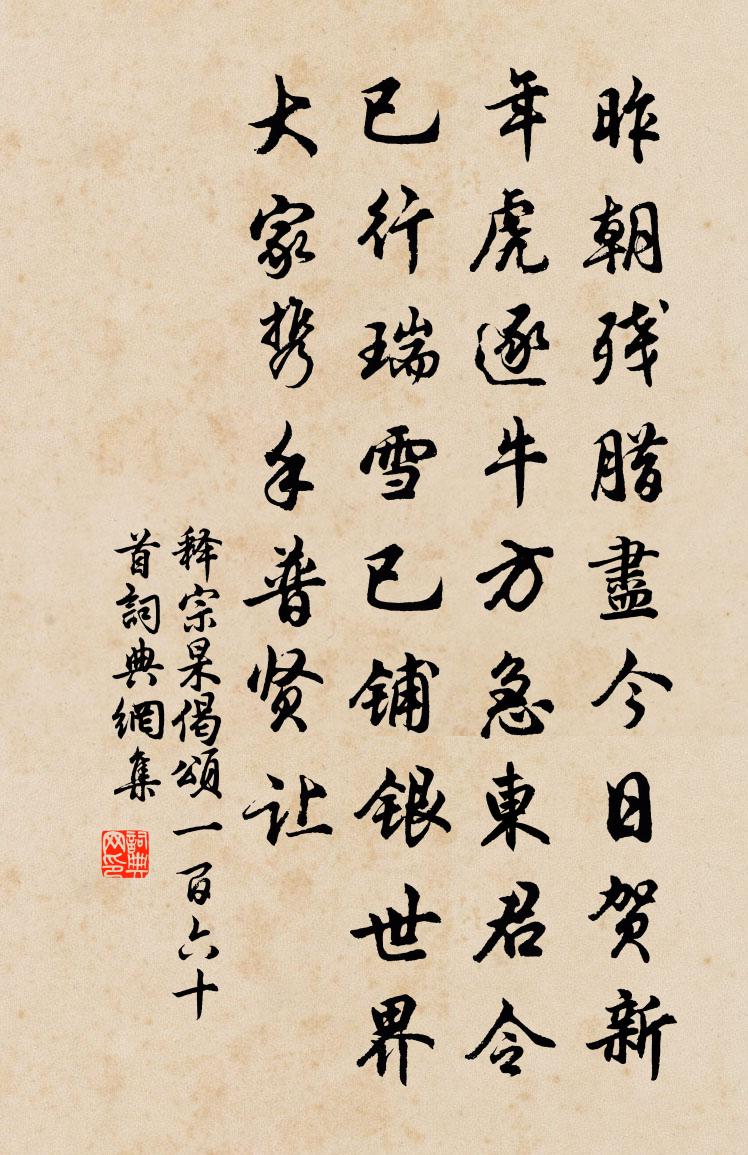 昨朝残腊盡今日贺新
年虎逐牛方急東君令
已行瑞雪已铺银世界
大家携手普贤让
释宗杲偈頌一百六十
首詞典網集
詞典网印